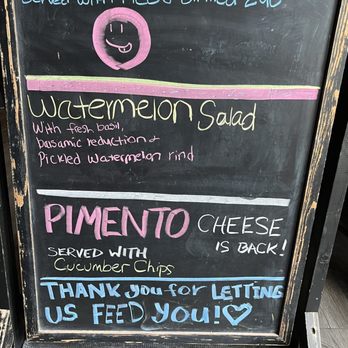 Served with
Watermelon Salad
With fresh basil,
balsamic reduction &
Pickled Watermelon rind
PIMENTO CHEESE
IS BACK!
SERVED WITH
Cucumber Chips
THANK you for LETTING
US FEED you!♡